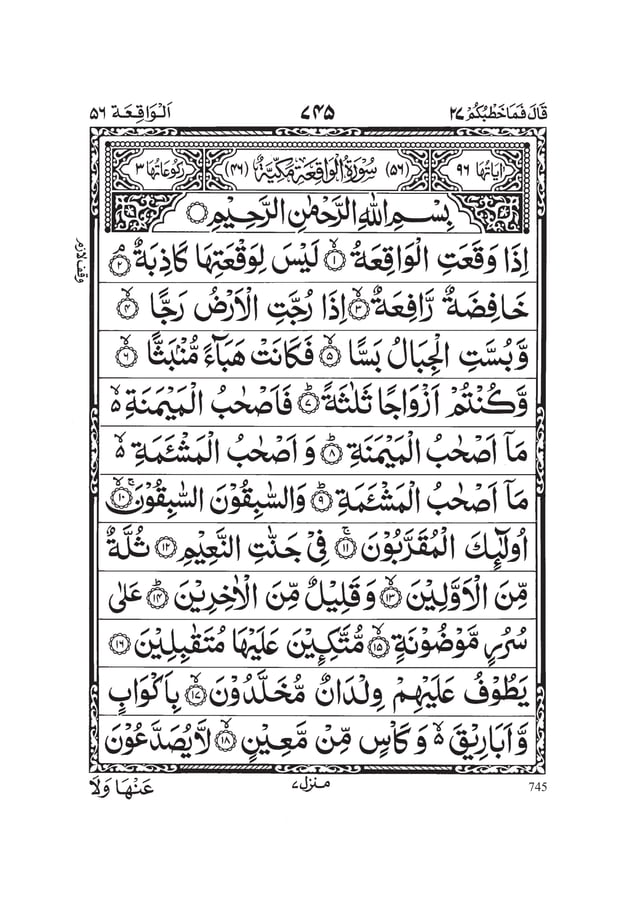 قَالَ فَمَا خَطْبُكُمْ ٢٧ ٧٤٥ اَلْوَاقِعَة ٥٦
اٰيَاتُهَا ٩٦ (٥٦) سُوْرَةُ الْوَاقِعَةِ مَكِّيَّةٌ (٤٦) رُكُوْعَاتُهَا ٣
بِسْمِ اللّٰهِ الرَّحْمٰنِ الرَّحِيْمِ
اِذَا وَقَعَتِ الْوَاقِعَةُ ۙ﴿١﴾ لَيْسَ لِوَقْعَتِهَا كَاذِبَةٌ ۘ﴿٢﴾
وقف لازم
خَافِضَةٌ رَّافِعَةٌ ۙ﴿٣﴾ اِذَا رُجَّتِ الْاَرْضُ رَجًّا ۙ﴿٤﴾
وَّ بُسَّتِ الْجِبَالُ بَسًّا ۙ﴿٥﴾ فَكَانَتْ هَبَآءً مُّنْۢبَثًّا ۙ﴿٦﴾
وَّكُنْتُمْ اَزْوَاجًا ثَلٰثَةً ؕ﴿٧﴾ فَاَصْحٰبُ الْمَيْمَنَةِ ۙ۬
مَاۤ اَصْحٰبُ الْمَيْمَنَةِ ؕ﴿٨﴾ وَ اَصْحٰبُ الْمَشْـَٔمَةِ ۙ۬
مَاۤ اَصْحٰبُ الْمَشْـَٔمَةِ ؕ﴿٩﴾ وَالسّٰبِقُوْنَ السّٰبِقُوْنَ ۚۙ﴿١٠﴾
اُولٰٓئِكَ الْمُقَرَّبُوْنَ ۚ﴿١١﴾ فِيْ جَنّٰتِ النَّعِيْمِ ﴿١٢﴾ ثُلَّةٌ
مِّنَ الْاَوَّلِيْنَ ۙ﴿١٣﴾ وَ قَلِيْلٌ مِّنَ الْاٰخِرِيْنَ ؕ﴿١٤﴾ عَلٰى
سُرُرٍ مَّوْضُوْنَةٍ ۙ﴿١٥﴾ مُّتَّكِـِٕيْنَ عَلَيْهَا مُتَقٰبِلِيْنَ ﴿١٦﴾
يَطُوْفُ عَلَيْهِمْ وِلْدَانٌ مُّخَلَّدُوْنَ ۙ﴿١٧﴾ بِاَكْوَابٍ
وَّ اَبَارِيْقَ ۙ۬ وَ كَاْسٍ مِّنْ مَّعِيْنٍ ۙ﴿١٨﴾ لَّا يُصَدَّعُوْنَ
عَنْهَا وَلَا منزل ٧ 745